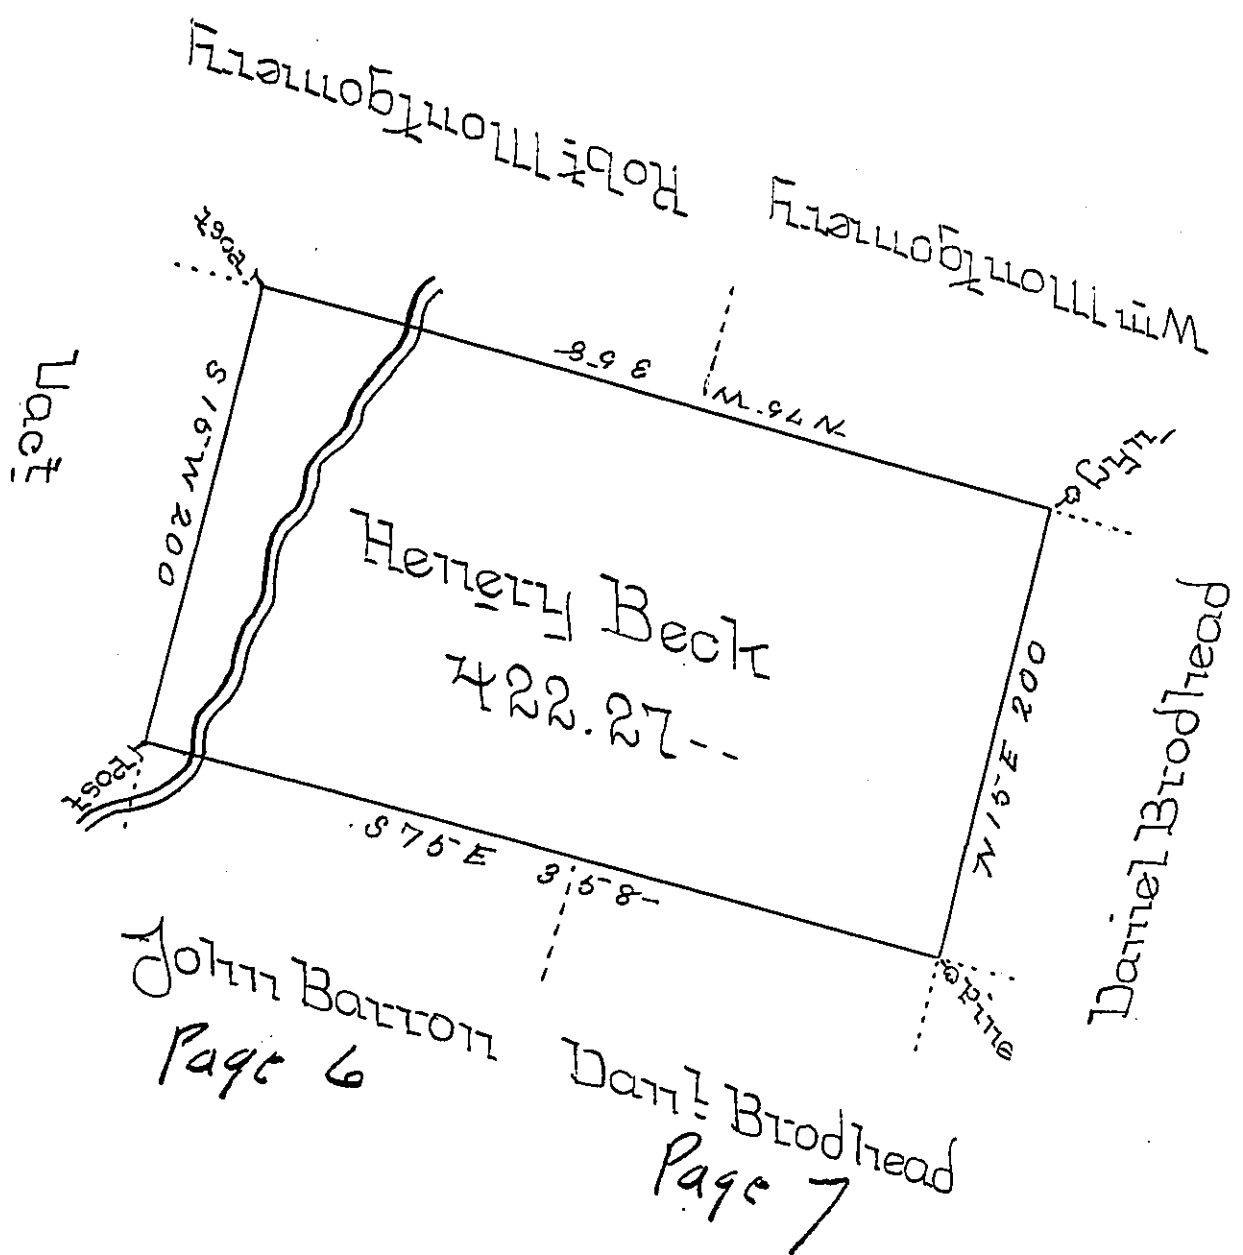 Robt Montgomery
Wm Montgomery
post
358
N 75 W
Lyn
Vact
S 15 W 200
Henery Beck
422.27--
N 15 E 200
Daniel Brodhead
post
S 75 E 358
pine
John Barron
Page 6
Danl Brodhead
Page 7